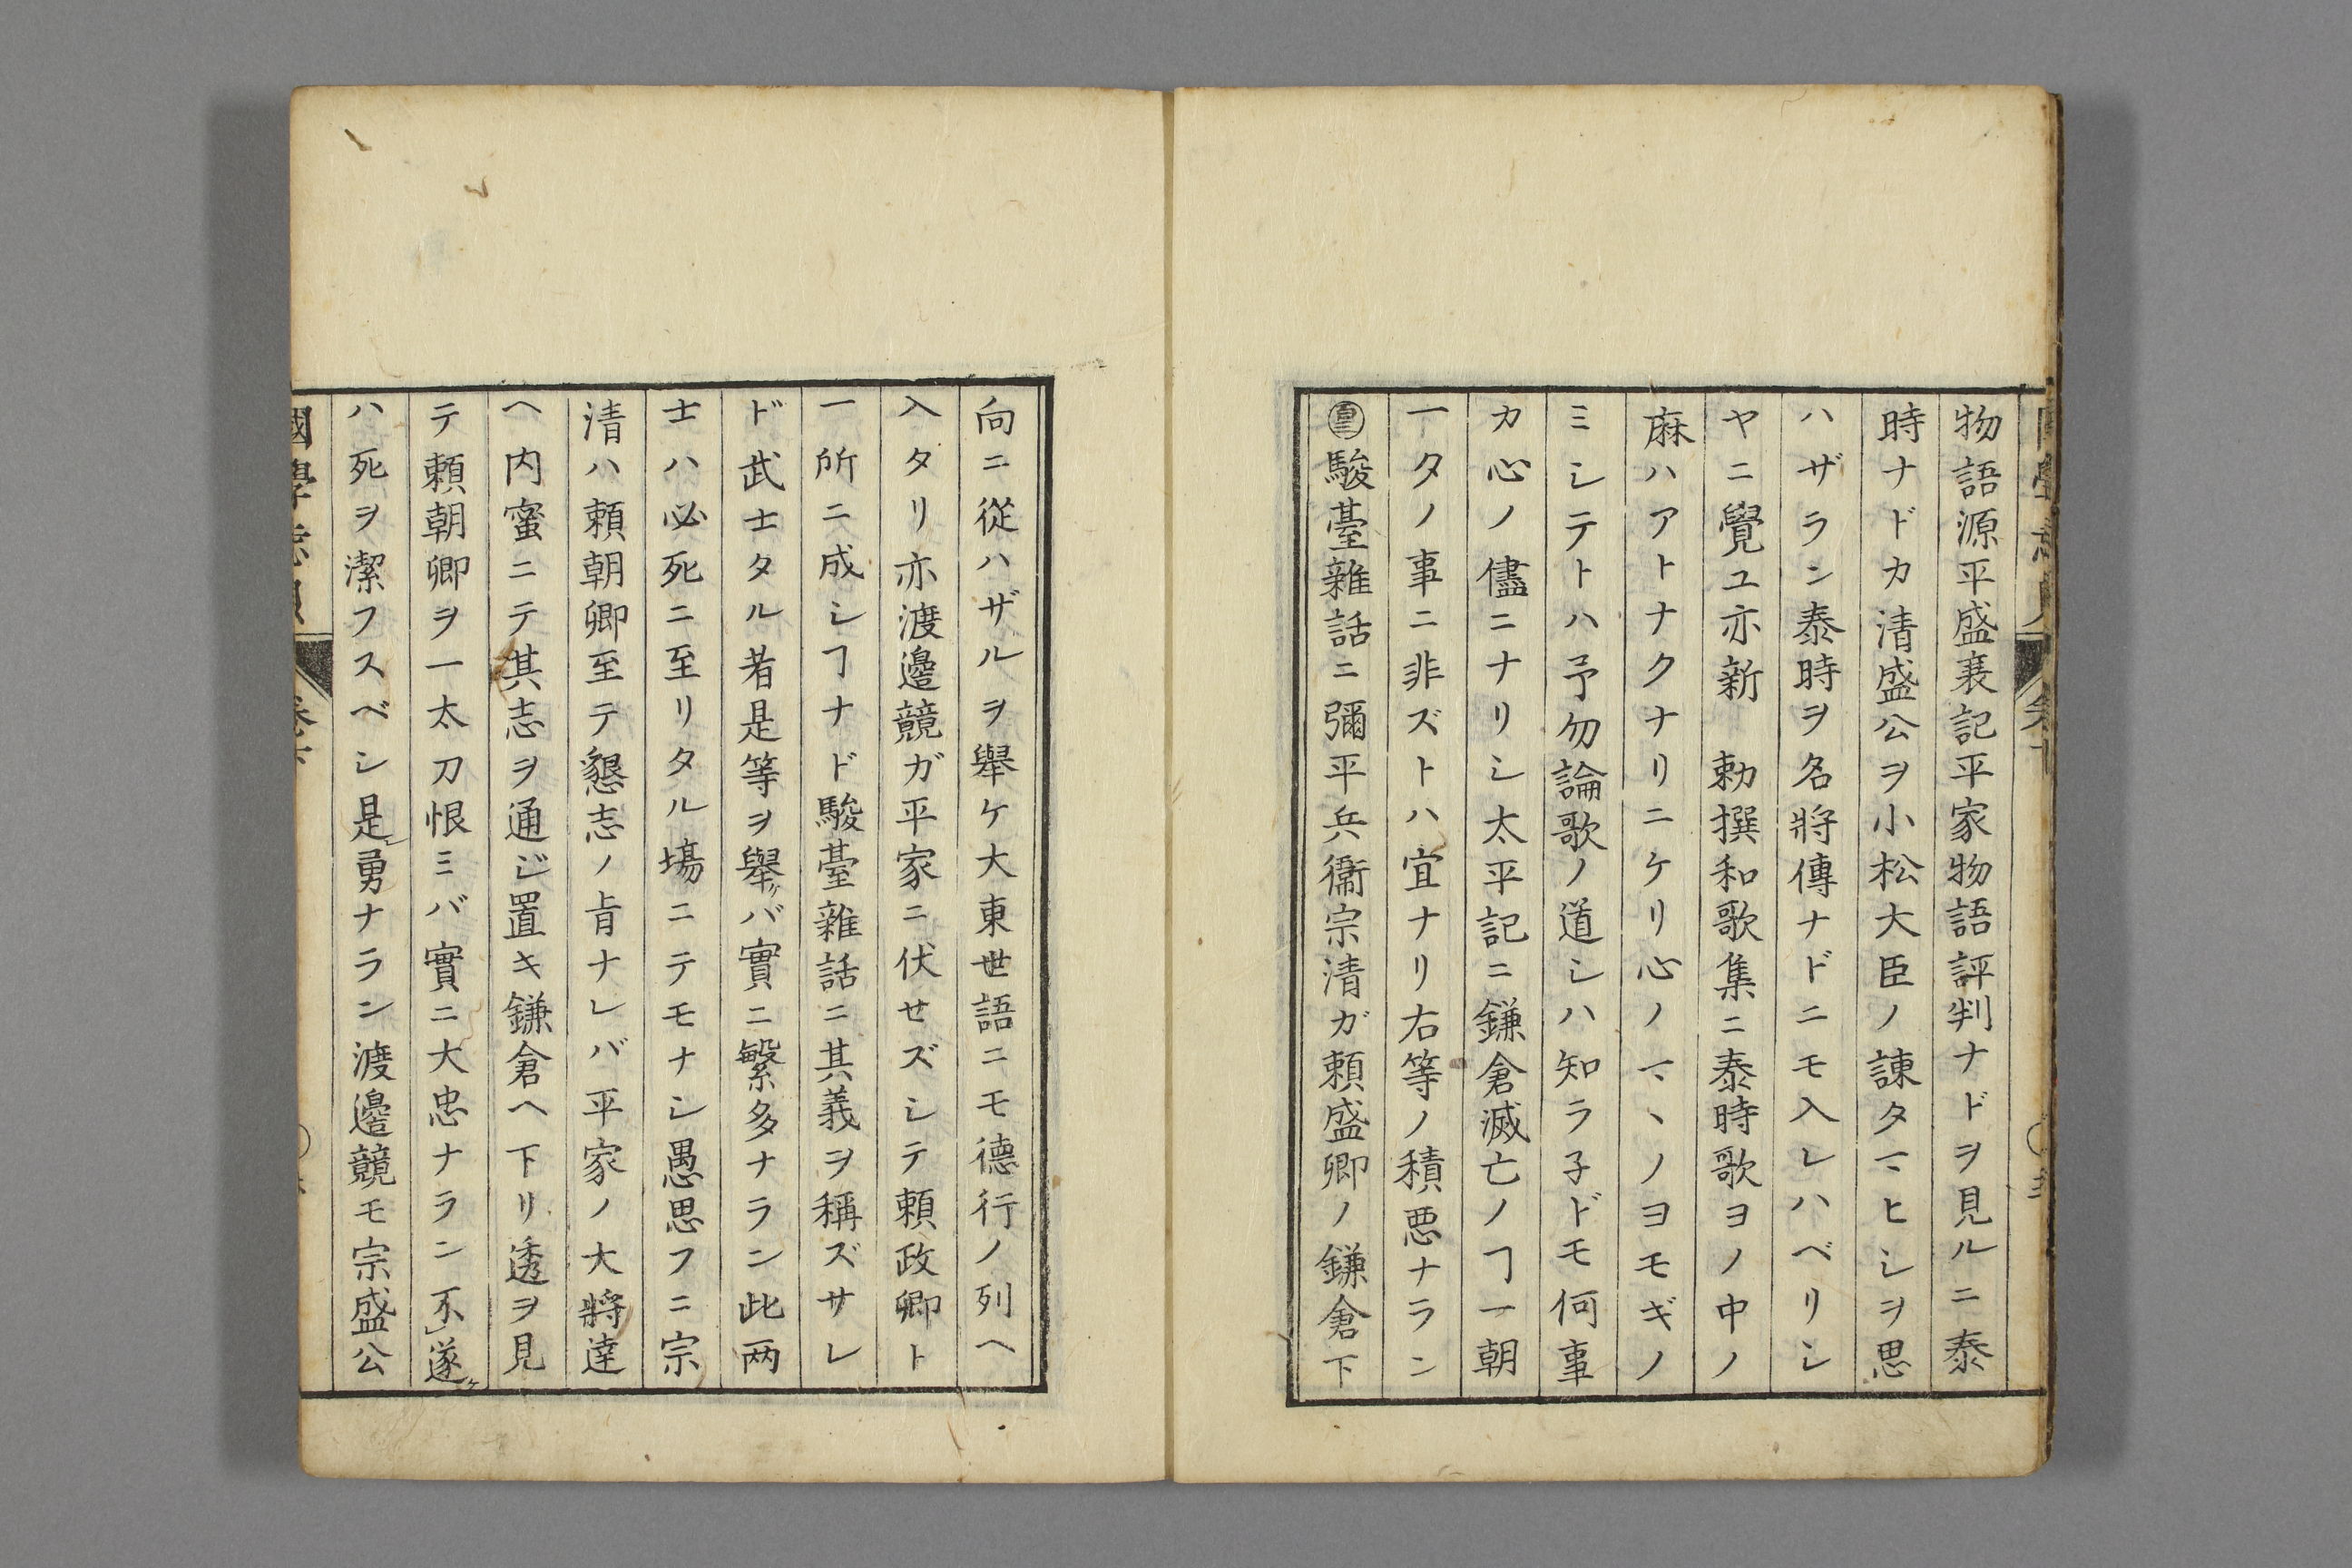 物語源平盛衰記平家物語評判ナドヲ見ルニ泰
時ナドカ清盛公ヲ小松大臣ノ諌タマヒシヲ思
ハザラン泰時ヲ名將傳ナドニモ入レハベリシ
ヤニ覺ユ亦新　勅撰和歌集ニ泰時歌ヨノ中ノ
麻ハアトナクナリニケリ心ノマヽノヨモギノ
ミシテトハ予勿論歌ノ道シハ知ラ子ドモ何事
カ心ノ儘ニナリシ太平記ニ鎌倉滅亡ノヿ一朝
一タノ事ニ非ズトハ宜ナリ右等ノ積悪ナラン
駿臺雜話ニ彌平兵衞宗清ガ頼盛卿ノ鎌倉下
向ニ從ハザルヲ舉ケ大東世語ニモ德行ノ列ヘ
入タリ亦渡邉競ガ平家ニ伏セズシテ頼政卿ト
一所ニ成シヿナド駿臺雜話ニ其義ヲ稱ズサレ
ド武士タル者是等ヲ舉ゲバ實ニ繄多ナラン此两
士ハ必死ニ至リタル塲ニテモナシ愚思フニ宗
清ハ頼朝卿至テ懇志ノ肯ナレバ平家ノ大將達
ヘ内蜜ニテ其志ヲ通ジ置キ鎌倉ヘ下リ透ヲ見
テ頼朝卿ヲ一太刀恨ミバ實ニ大忠ナラン不レ遂ケ
ハ死ヲ潔フスベシ是レ勇ナラン渡邉競モ宗盛公
國學